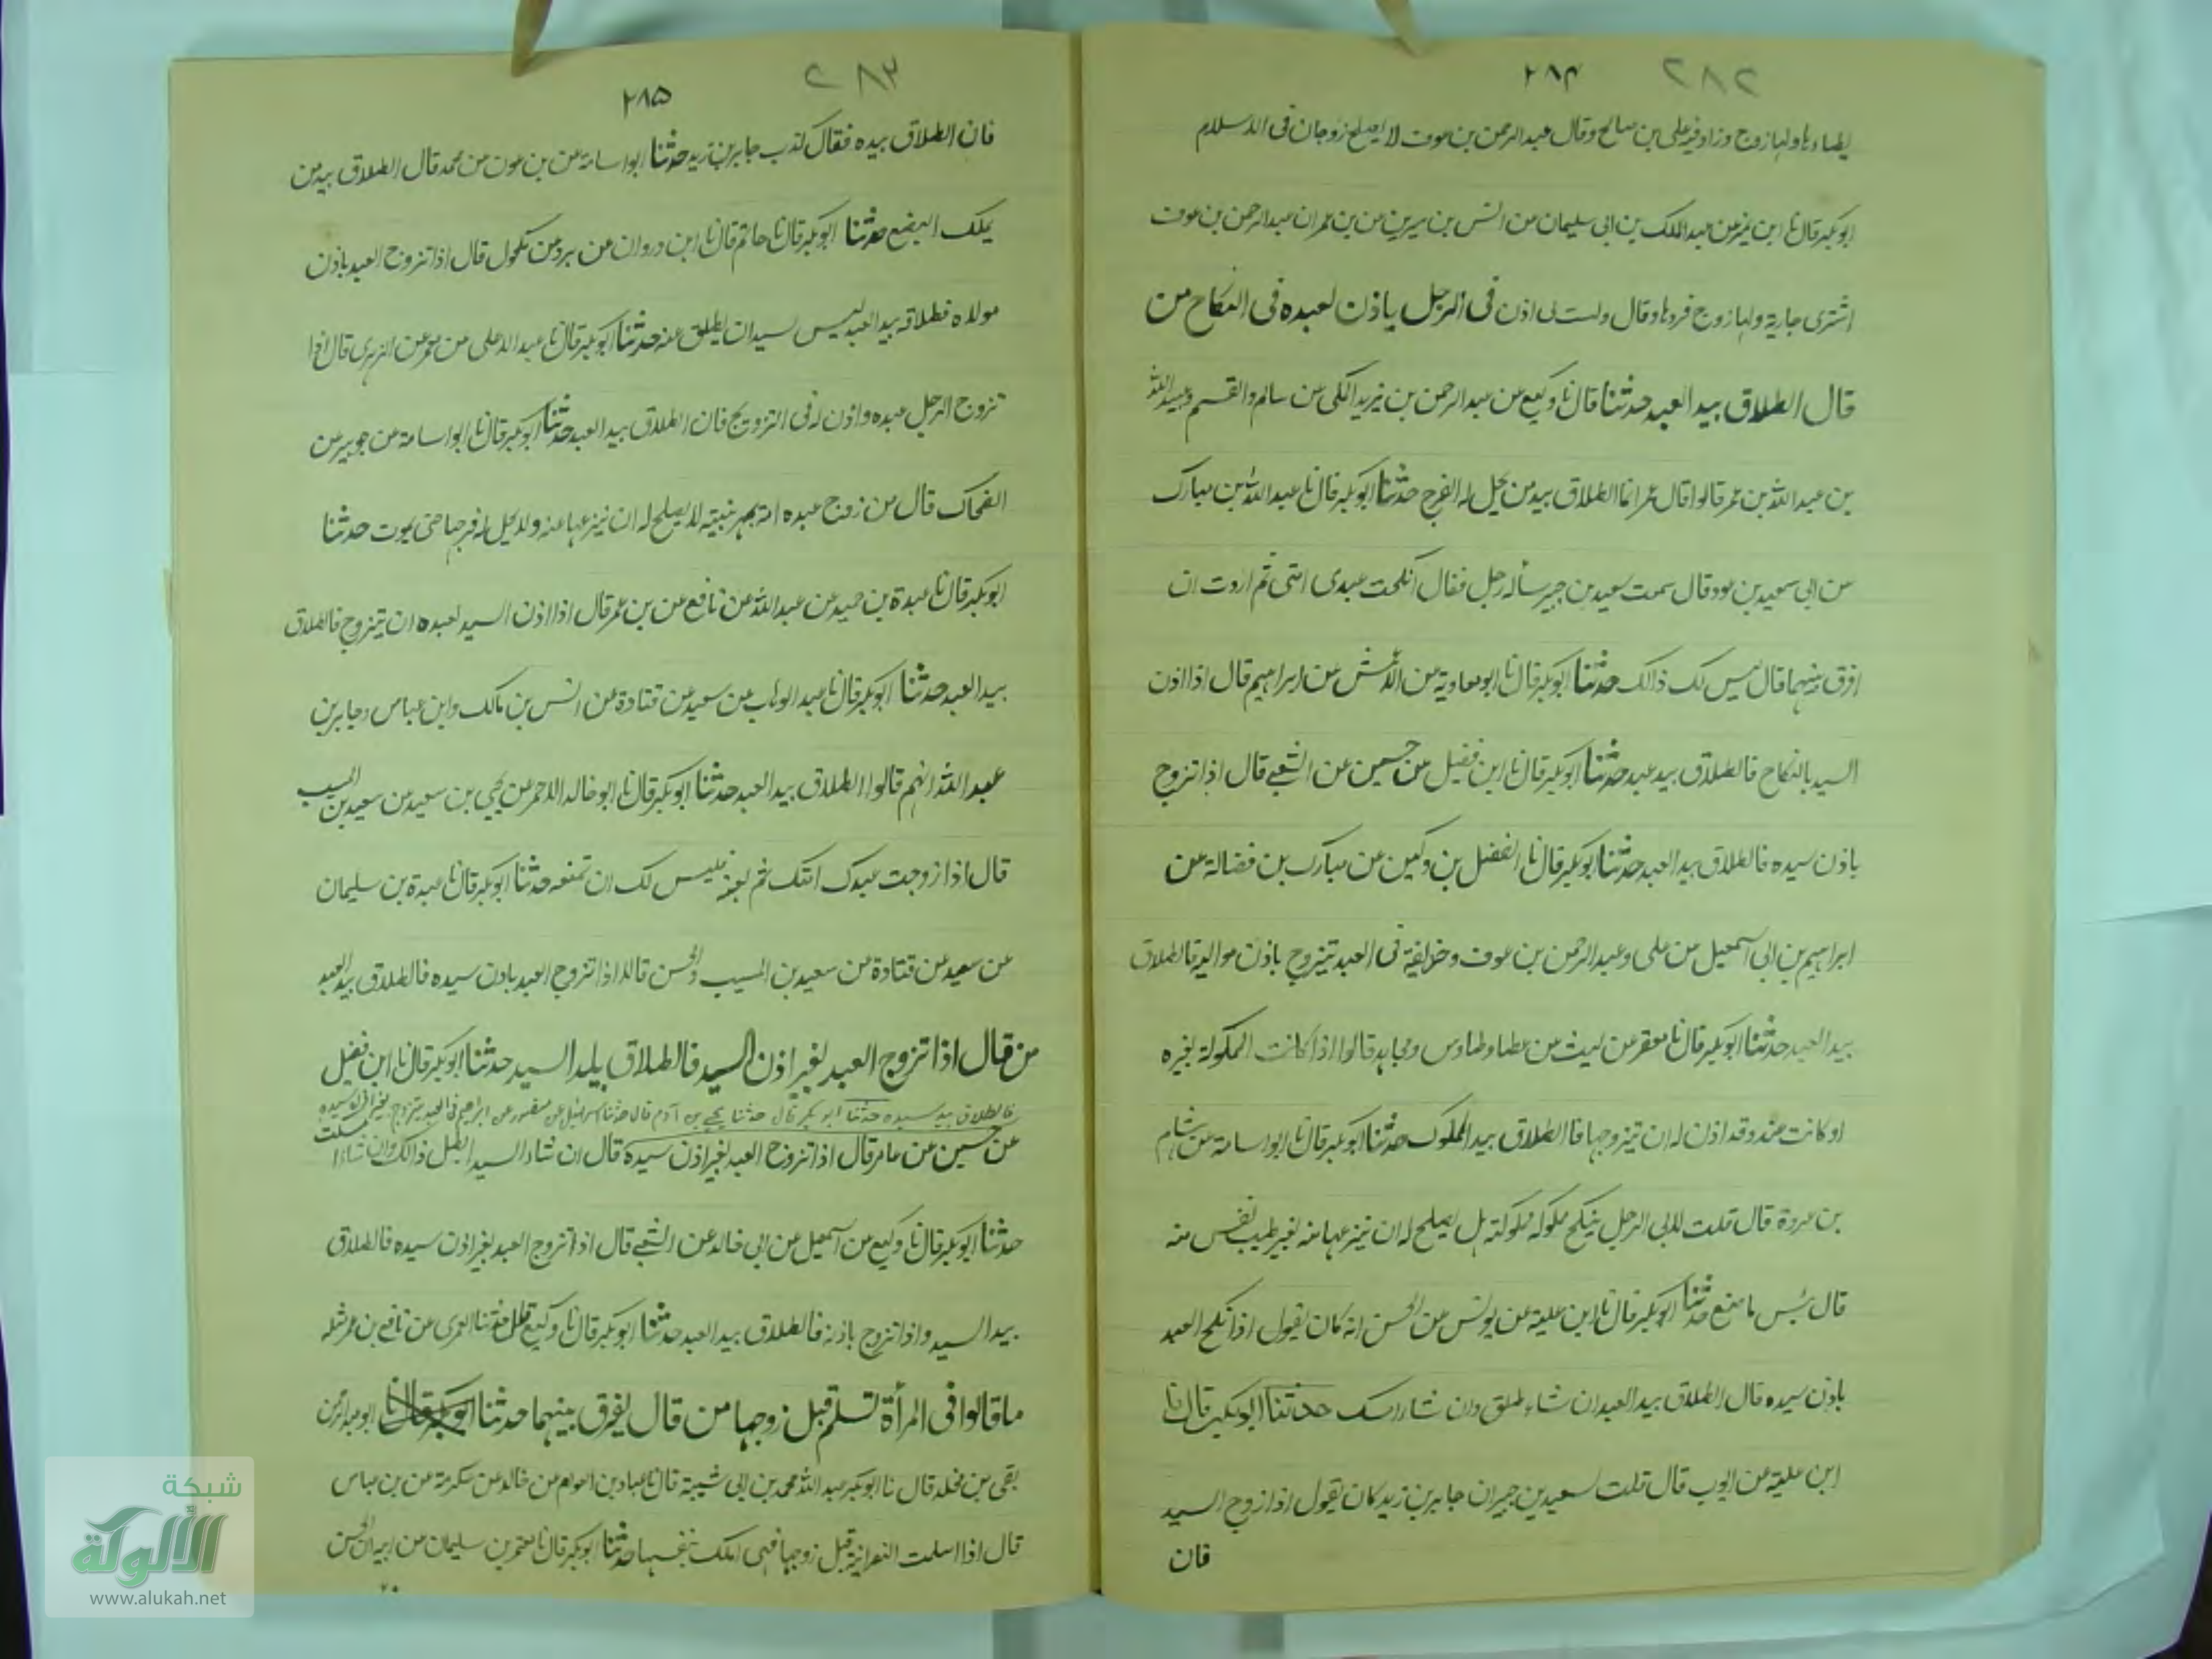 ٢٨٢ ٢٨۴
يطاءها ولها زوج وزاد فيه على بن صالح وقال عبد الرحمن بن عوف لا يصلح زوجان فى الاسلام
ابوبكر قال نا ابن نمير عن عبد الملك بن ابى سليمان عن انس بن سيرين عن بن عمر ان عبد الرحمن بن عوف
اشترى جارية ولها زوج فردها وقال وليت لى اذن فى الرجل ياذن لعبده فى النكاح من
قال الطلاق بيد العبد حدثنا قال نا وكيع عن عبد الرحمن بن يزيد المكى عن سالم والقسم وعبيد الله
بن عبد الله بن عمر قالوا قال عمر انما الطلاق بيد من يحل له الفرج حدثنا ابوبكر قال نا عبد الله بن مبارك
عن ابى سعيد بن عود قال سمعت سعيد بن جبير سأله رجل فقال انكحت عبدى امتى ثم اردت ان
افرق بينهما قال ليس لك ذالك حدثنا ابوبكر قال نا ابو معاوية عن الاعمش عن ابراهيم قال اذا اذن
السيد بالنكاح فالطلاق بيد عبد حدثنا ابوبكر قال نا ابن فضيل عن حسين عن الشعبے قال اذا تزوج
باذن سيده فالطلاق بيد العبد حدثنا ابوبكر قال نا الفضل بن دكين عن مبارك بن فضالة عن
ابراهيم بن ابى اسمعيل عن على وعبد الرحمن بن عوف وحذيفة فى العبد يتزوج باذن مواليه فالطلاق
بيد العبد حدثنا ابوبكر قال نا معتمر عن ليث عن عطا وطاوس ومجاهد قالوا اذا كانت المملوكة لغيره
او كانت عنده وقد اذن له ان يتزوجها فالطلاق بيد المملوك حدثنا ابوبكر قال نا ابو اسامة عن هشام
بن عروة قال قلت لابى الرجل ينكح مملوكه مملوكته هل يصلح له ان ينزعها منه لغير طيب نفس منه
قال بئس ما صنع حدثنا ابوبكر قال نا ابن علية عن يونس عن الحسن انه كان يقول اذا نكح العبد
باذن سيده قال الطلاق بيد العبد ان شاء طلق وان شاء امسك حدثنا ابوبكر قال نا
ابن علية عن ايوب قال قلت لسعيد بن جبير ان جابر بن زيد كان يقول اذا زوج السيد
فان
٢٨٣ ٢٨۵
فان الطلاق بيده فقال كذب جابر بن زيد حدثنا ابو اسامة عن بن عون عن محمد قال الطلاق بيد من
يملك البضع حدثنا ابوبكر قال نا حاتم قال نا ابن وردان عن برد عن مكحول قال اذا تزوج العبد باذن
مولاه فطلاقه بيد العبد ليس لسيد ان يطلق عنه حدثنا ابوبكر قال نا عبد الاعلى عن معمر عن الزهرى قال اذا
تزوج الرجل عبده واذن له فى التزويج فان الطلاق بيد العبد حدثنا ابوبكر قال نا ابو اسامة عن جويبر عن
الضحاك قال من زوج عبده امته بمهر بنيته لا يصلح له ان ينزعها عنه ولا يحل له فرجها حتى يموت حدثنا
ابوبكر قال نا عبدة بن حميد عن عبد الله عن نافع عن بن عمر قال اذا اذن السيد لعبده ان يتزوج فالطلاق
بيد العبد حدثنا ابوبكر قال نا عبد الوهاب عن سعيد عن قتادة عن انس بن مالك وابن عباس وجابر بن
عبد الله انهم قالوا الطلاق بيد العبد حدثنا ابوبكر قال نا ابو خالد الاحمر عن يحيى بن سعيد عن سعيد بن المسيب
قال اذا زوجت عبدك امتك ثم بعته فليس لك ان تمنعه حدثنا ابوبكر قال نا عبدة بن سليمان
عن سعيد عن قتادة عن سعيد بن المسيب والحسن قالا اذا تزوج العبد باذن سيده فالطلاق بيد العبد
من قال اذا تزوج العبد لغير اذن السيد فالطلاق بيد السيد حدثنا ابوبكر قال نا ابن فضيل
فالطلاق بيد سيده حدثنا ابو بكر قال حدثنا يحيے بن آدم قال حدثنا اسرائيل عن منصور عن ابراهيم فى العبد يتزوج بغير اذن سيده
عن حسين عن عامر قال اذا تزوج العبد لغير اذن سيده قال ان شاء السيد ابطل ذالك وان شاء امسكت
حدثنا ابوبكر قال نا وكيع عن اسمعيل عن ابى خالد عن الشعبے قال اذا تزوج العبد بغير اذن سيده فالطلاق
بيد السيد واذا تزوج باذنه فالطلاق بيد العبد حدثنا ابوبكر قال نا وكيع قال حدثنا العمرى عن نافع بن عمر مثله
ما قالوا فى المرأة تسلم قبل زوجها من قال يفرق بينهما حدثنا ابوبكر قال نا ابو عبد الرحمن
بقى بن مخلد قال نا ابوبكر عبد الله محمد بن ابى شيبة قال نا عباد بن العوام عن خالد عن عكرمة عن بن عباس
قال اذا اسلمت النصرانية قبل زوجها فهى املك بنفسها حدثنا ابوبكر قال نا معتمر بن سليمان عن ابيه ان الحسن
شبكة
الألوكة
www.alukah.net